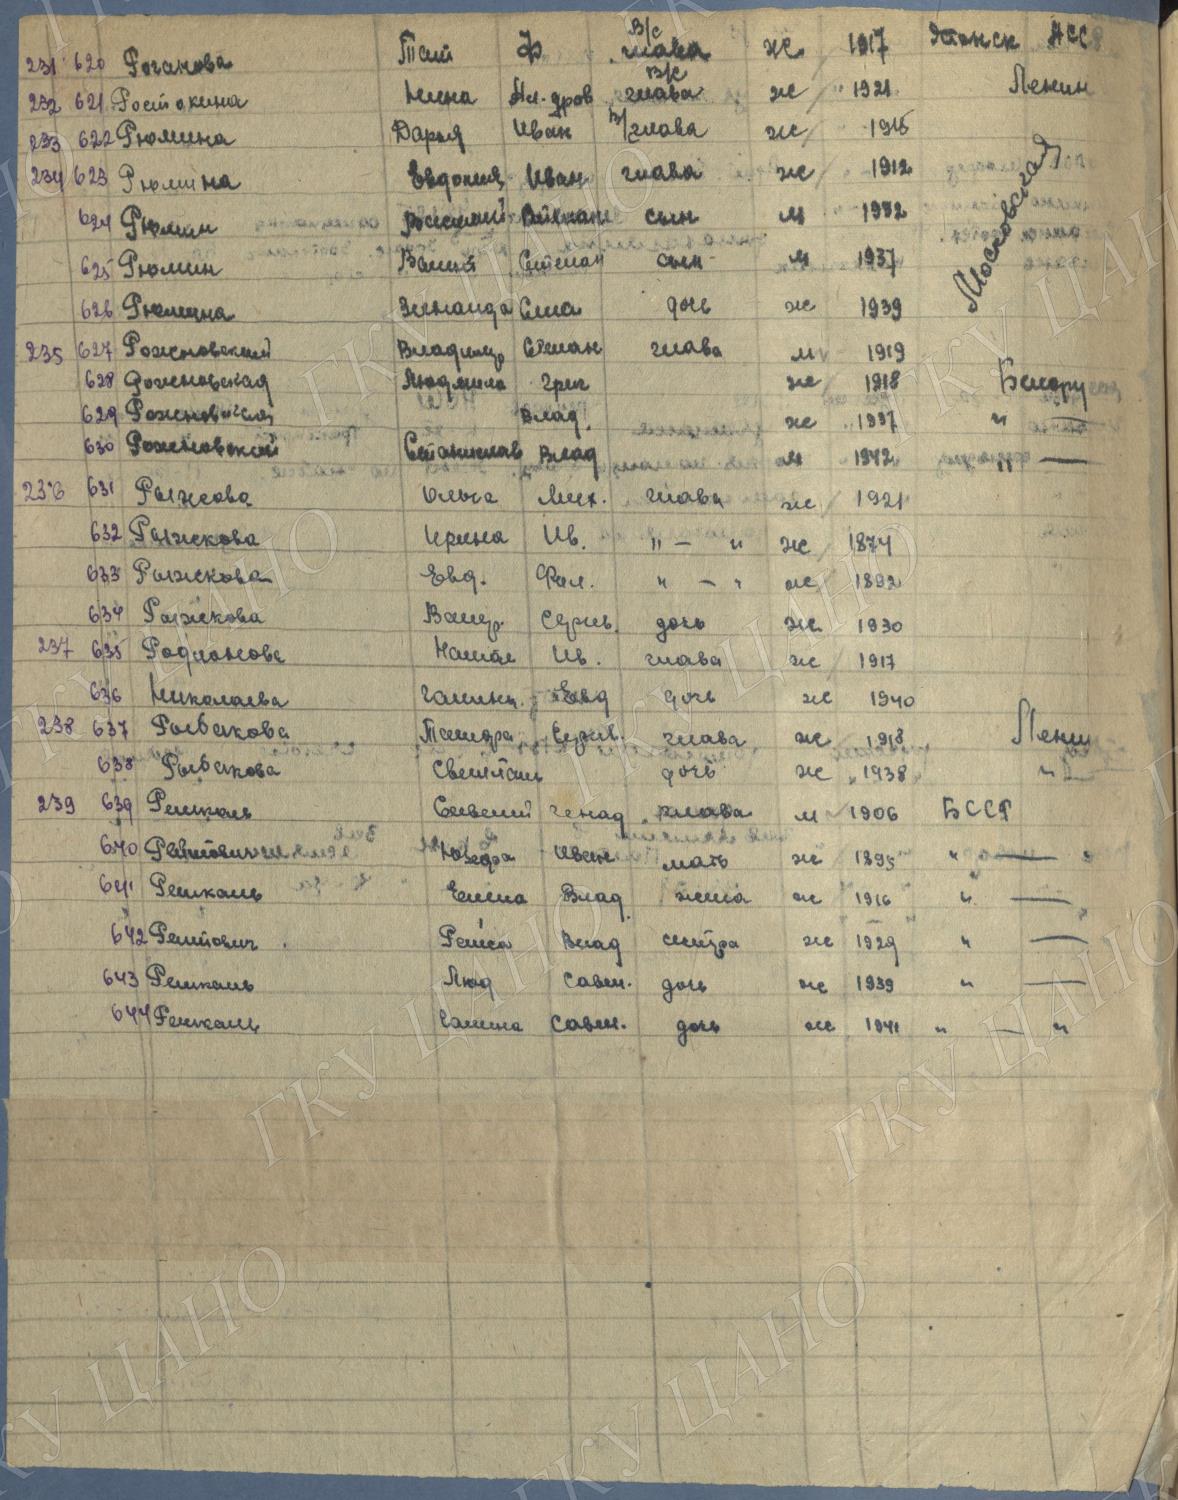 231 620 Роганова Таис Ф. В/с глава ж 1917 Эстонск АСС
232 621 Ростокина Нина Ал-дров В/с глава ж 1921 Ленин
233 622 Рюмина Дарья Иван В/ глава ж 1915
234 623 Рюмина Евдокия Иван глава ж 1912 Московская
624 Рюмин сын м 1932
625 Рюмин Степан сын м 1937
626 Рюмина Зинаида дочь ж 1939
235 627 Рожновский Владимир Степан глава м 1919
628 Рожновская Людмила Григ ж 1918 Белору
629 Рожновская Влад. ж 1937 " —
630 Рожновский Станислав Влад м 1942 " —
236 631 Рыжова Ольга Мих. глава ж 1921
632 Рыжкова Ирина Ив. " — " ж 1874
633 Рыжкова Евд. Фил. " — " ж 1892
634 Рыжкова Валер. Сергив. дочь ж 1930
237 635 Родионова Натал Ив. глава ж 1917
636 Николаева Галина Евд дочь ж 1940
238 637 Рыбакова Тамара Сергив. глава ж 1918 Ленин
638 Рыбакова Светлана дочь ж 1938 " —
239 639 Ренкаль Генад глава м 1906 БССР
640 Иван мать ж 1895 " — "
641 Ренкаль Елена Влад. жена ж 1916 " — "
642 Рентович Раиса Влад сестра ж 1929 " —
643 Ренкаль Люд Савел. дочь ж 1939 " —
644 Ренкаль Галина Савел. дочь ж 1941 " — "
ГКУ ЦАНО